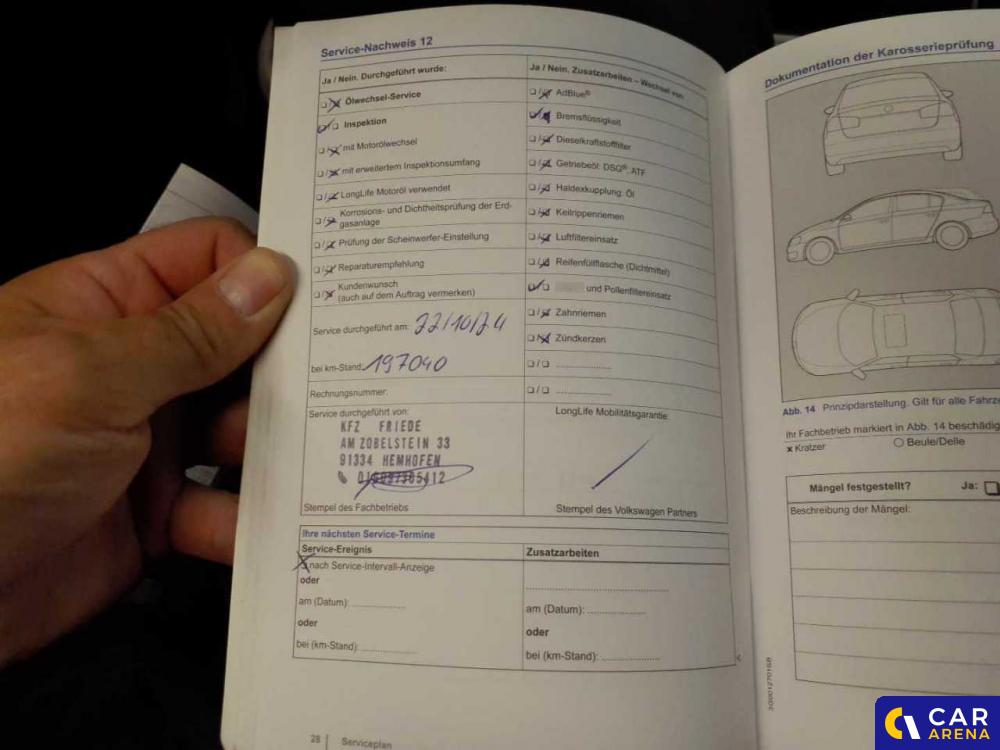 Service-Nachweis 12
Ja / Nein. Durchgeführt wurde:
Ölwechsel-Service
Inspektion
mit Motorölwechsel
mit erweitertem Inspektionsumfang
LongLife Motoröl verwendet
Korrosions- und Dichtheitsprüfung der Erd-
gasanlage
Prüfung der Scheinwerfer-Einstellung
Reparaturempfehlung
Kundenwunsch
(auch auf dem Auftrag vermerken)
Service durchgeführt am: 22/10/24
bei km-Stand: 197040
Rechnungsnummer:
Service durchgeführt von:
KFZ FRIEDE
AM ZOBELSTEIN 33
91334 HEMHOFEN
Stempel des Fachbetriebs
Ja / Nein. Zusatzarbeiten – Wechsel von:
AdBlue®
Bremsflüssigkeit
Dieselkraftstofffilter
Getriebeöl: DSG®, ATF
Haldexkupplung: Öl
Keilrippenriemen
Luftfiltereinsatz
Reifenfüllflasche (Dichtmittel)
und Pollenfiltereinsatz
Zahnriemen
Zündkerzen
LongLife Mobilitätsgarantie:
Stempel des Volkswagen Partners
Ihre nächsten Service-Termine
Service-Ereignis
nach Service-Intervall-Anzeige
oder
am (Datum):
oder
bei (km-Stand):
Zusatzarbeiten
am (Datum):
oder
bei (km-Stand):
28 Serviceplan
Dokumentation der Karosserieprüfung
Abb. 14 Prinzipdarstellung. Gilt für alle Fahrze
Ihr Fachbetrieb markiert in Abb. 14 beschädig
x Kratzer
Beule/Delle
Mängel festgestellt? Ja:
Beschreibung der Mängel:
CAR
ARENA